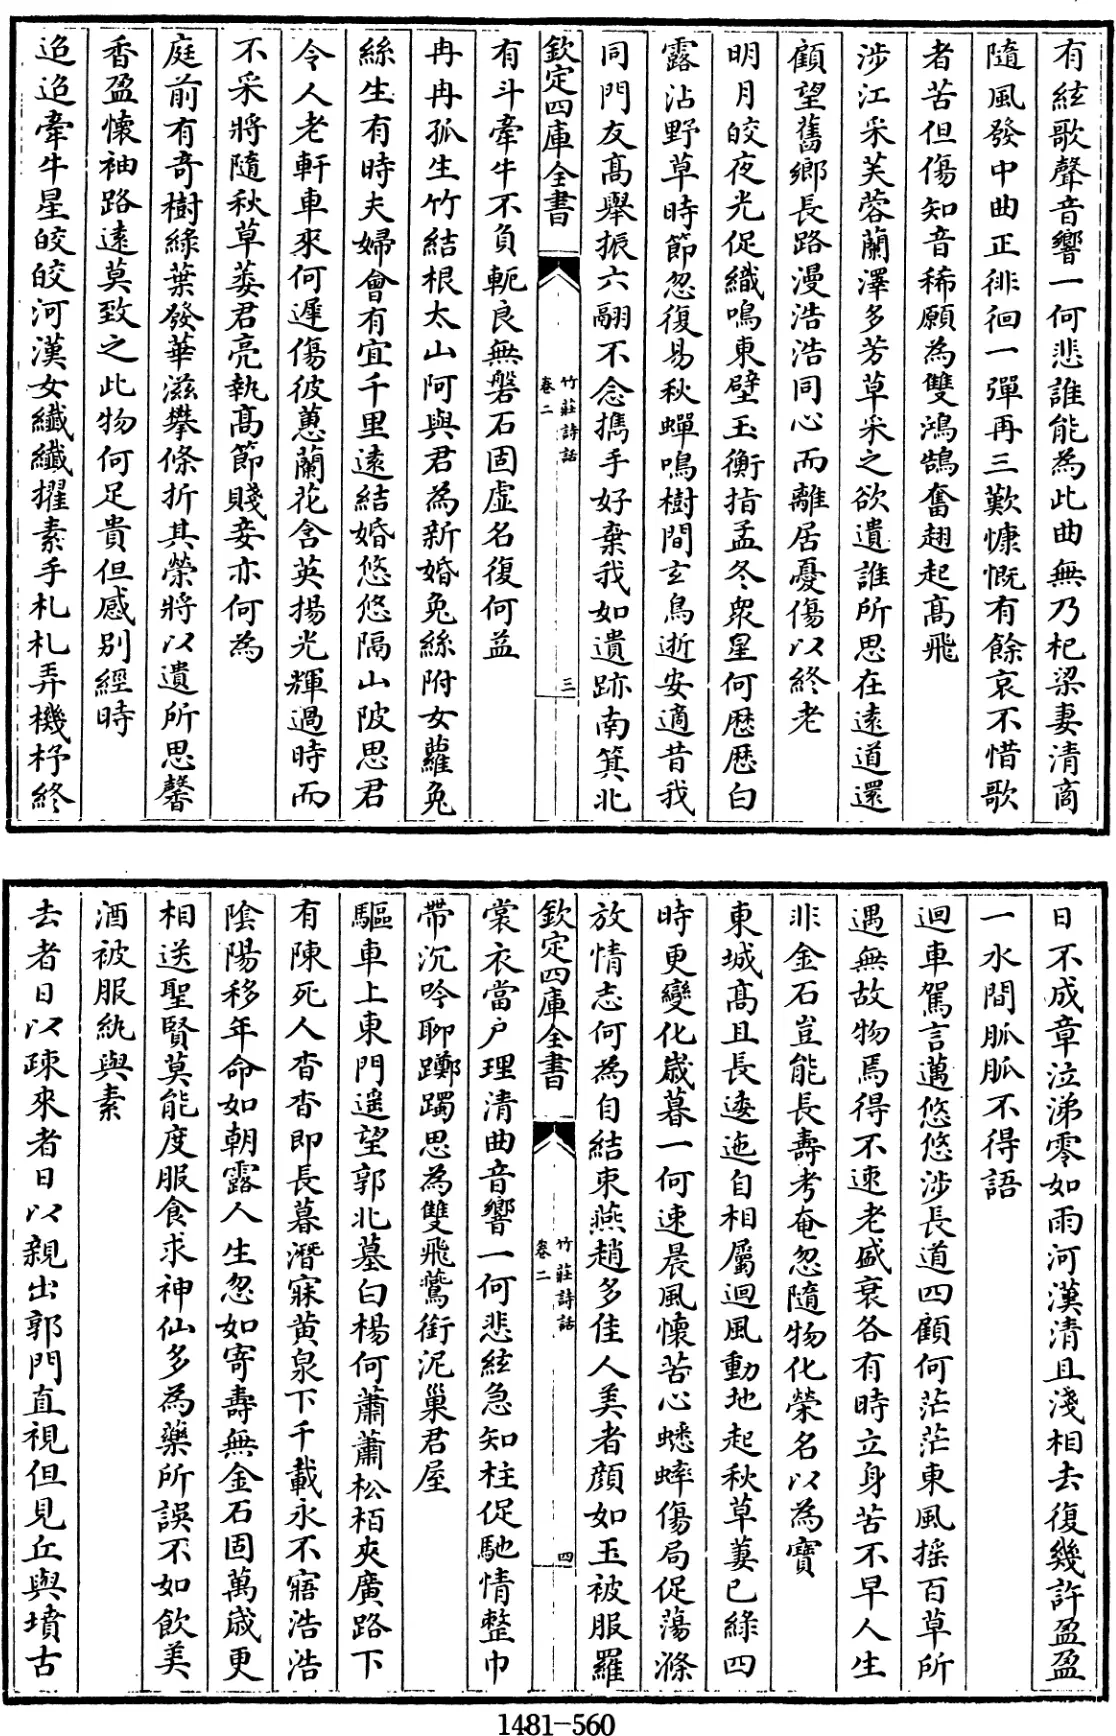 有絃歌聲音響一何悲誰能為此曲無乃杞梁妻清商
隨風發中曲正徘徊一彈再三歎慷慨有餘哀不惜歌
者苦但傷知音稀願為雙鴻鵠奮翅起髙飛
涉江采芙蓉蘭澤多芳草采之欲遺誰所思在逺道還
顧望舊鄉長路漫浩浩同心而離居憂傷以終老
明月皎夜光促織鳴東壁玉衡指孟冬衆星何歴歴白
露沾野草時節忽復易秋蟬鳴樹間玄鳥逝安適昔我
同門友髙舉振六翮不念攜手好棄我如遺跡南箕北
欽定四庫全書
竹莊詩話
卷二
三
有斗牽牛不負軛良無磐石固虛名復何益
冉冉孤生竹結根太山阿與君為新婚兔絲附女蘿兔
絲生有時夫婦會有宜千里逺結婚悠悠隔山陂思君
令人老軒車來何遲傷彼蕙蘭花含英揚光輝過時而
不采將隨秋草萎君亮執髙節賤妾亦何為
庭前有竒樹綠葉發華滋攀條折其榮將以遺所思馨
香盈懷袖路逺莫致之此物何足貴但感别經時
迢迢牽牛星皎皎河漢女纖纖擢素手札札弄機杼終
日不成章泣涕零如雨河漢清且淺相去復幾許盈盈
一水間脈脈不得語
迴車駕言邁悠悠涉長道四顧何茫茫東風揺百草所
遇無故物焉得不速老盛衰各有時立身苦不早人生
非金石豈能長壽考奄忽隨物化榮名以為寶
東城髙且長逶迤自相屬迴風動地起秋草萋已綠四
時更變化嵗暮一何速晨風懷苦心蟋蟀傷局促蕩滌
放情志何為自結束燕趙多佳人美者顔如玉被服羅
欽定四庫全書
竹莊詩話
卷二
四
裳衣當户理清曲音響一何悲絃急知柱促馳情整巾
帶沉吟聊躑躅思為雙飛鷰銜泥巢君屋
驅車上東門遥望郭北墓白楊何蕭蕭松栢夾廣路下
有陳死人杳杳即長暮潛寐黄泉下千載永不寤浩浩
陰陽移年命如朝露人生忽如寄壽無金石固萬嵗更
相送聖賢莫能度服食求神仙多為藥所誤不如飲美
酒被服紈與素
去者日以疎來者日以親出郭門直視但見丘與墳古
1481-560